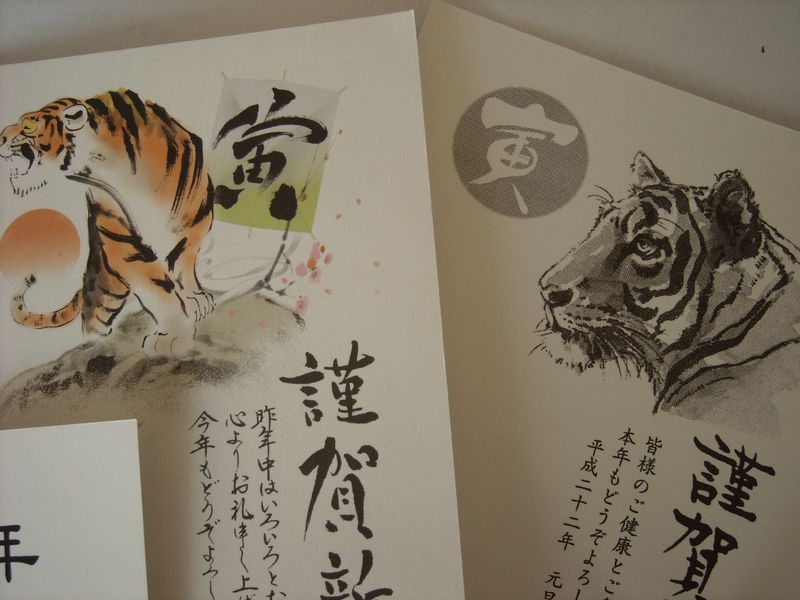 寅
謹賀新
昨年中はいろいろとお
心よりお礼申し上げ
今年もどうぞよろし
年
寅
謹賀
皆様のご健康とご
本年もどうぞよろし
平成二十二年 元旦